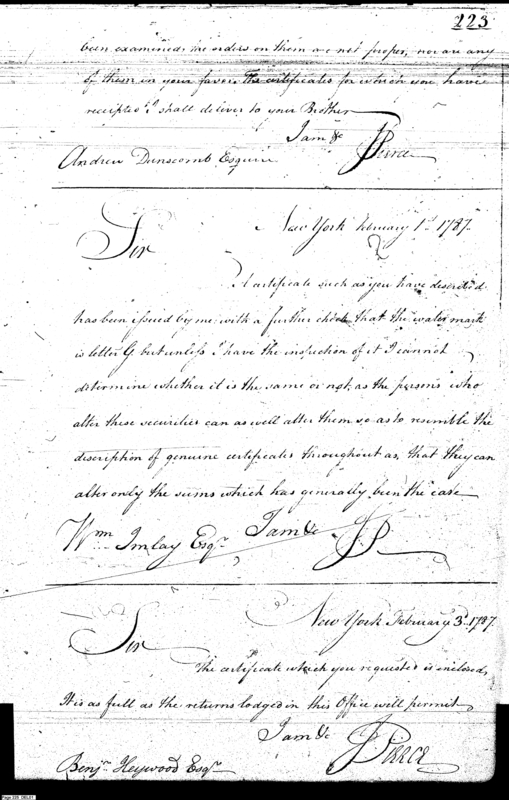 223
been examined; the orders on them are not proper, nor are any
of them in your favor. The certificates for which you have
receipted I shall deliver to your Brother
I am &c
JPierce
Andrew Dunscomb Esquire
New York February 1st. 1787.
Sir
A certificate such as you have described
has been issued by me with a further check that the water mark
is letter G but unless I have the inspection of it I cannot
determine whether it is the same or not, as the persons who
alter these securities can as well alter them so as to resemble the
description of genuine certificates throughout as that they can
alter only the sums which has generally been the case
Wm Imlay Esqr. I am &c JP
New York February 3d. 1787.
Sir
The certificate which you requested is enclosed,
It is as full as the returns lodged in this Office will permit,
I am &c
JPierce
Benjn. Heywood Esqr.